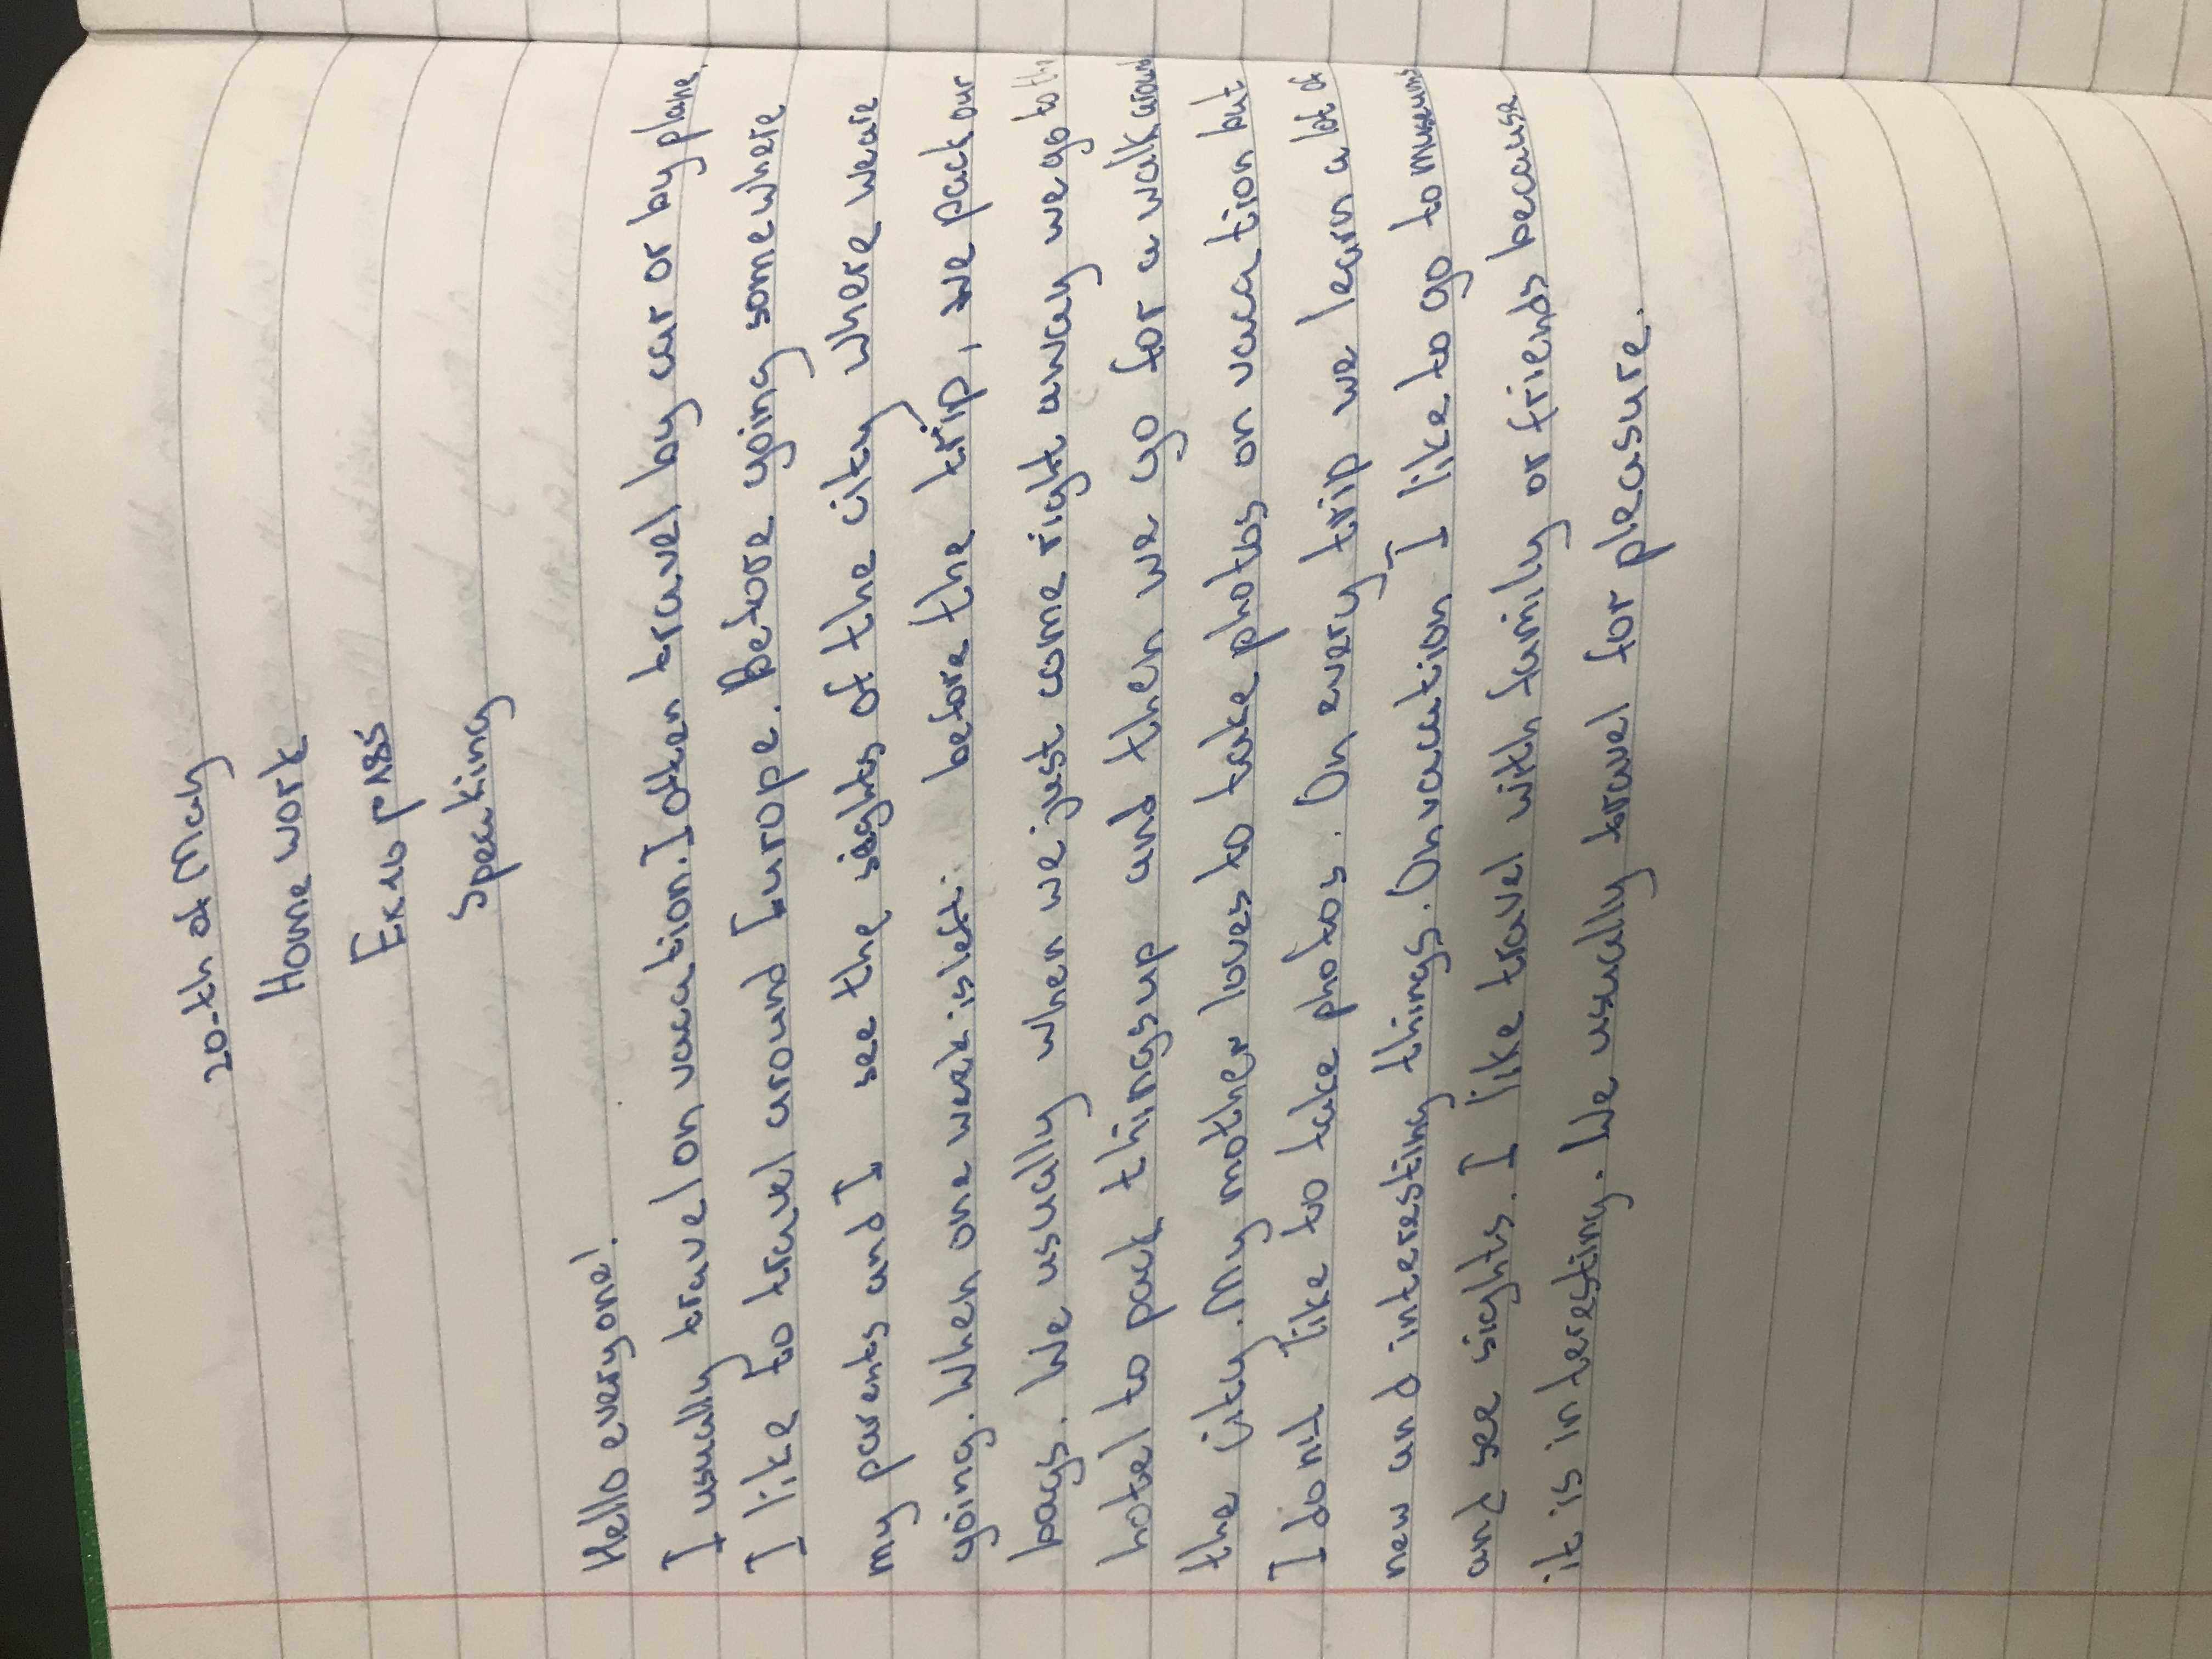 20-th of May
Home work
Ex 10 p 185
Speaking
Hello everyone!
I usually travel on vacation. I often travel by car or by plane.
I like to travel around Europe. Before going somewhere
my parents and I see the sights of the city where we are
going. When one week is left before the trip, we pack our
bags. We usually when we just come right away we go to the
hotel to pack things up and then we go for a walk around
the city. My mother loves to take photos on vacation but
I don't like to take photos. On every trip we learn a lot of
new and interesting things. On vacation I like to go to museums
and see sights. I like travel with family or friends because
it is interesting. We usually travel for pleasure.